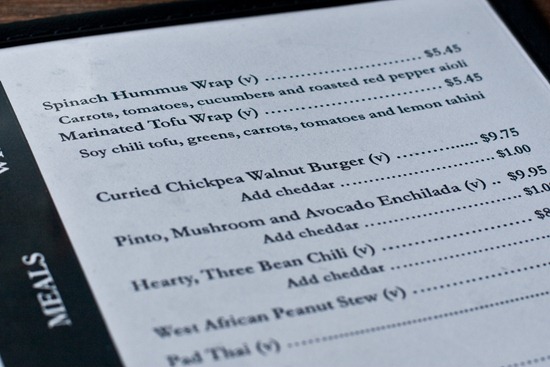 Spinach Hummus Wrap (v) .......................... $5.45
Carrots, tomatoes, cucumbers and roasted red pepper aioli
Marinated Tofu Wrap (v) .............................. $5.45
Soy chili tofu, greens, carrots, tomatoes and lemon tahini
Curried Chickpea Walnut Burger (v) ................ $9.75
Add cheddar .............................. $1.00
Pinto, Mushroom and Avocado Enchilada (v) .. $9.95
Add cheddar .............................. $1.0
Hearty, Three Bean Chili (v) .............................. $8
Add cheddar ..............................
West African Peanut Stew (v) ..............................
Pad Thai (v) ..............................
MEALS